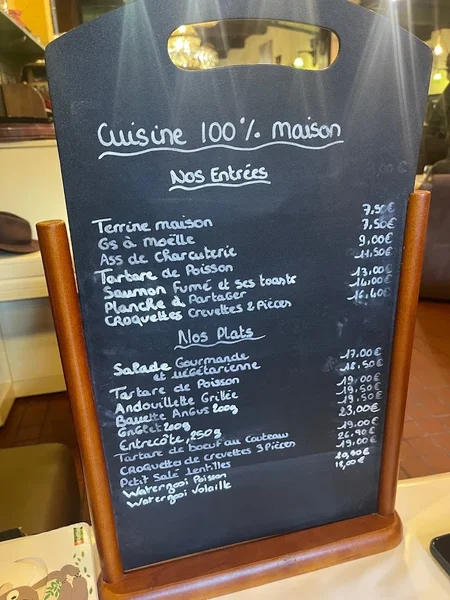 Cuisine 100% Maison
Nos Entrées
Terrine maison 7,50€
Os à moëlle 7,50€
Ass de charcuterie 9,00€
Tartare de Poisson 11,50€
Saumon Fumé et ses toasts 13,00€
Planche à Partager 14,00€
CROQUETTES Crevettes 2 Pièces 16,40€
Nos Plats
Salade Gourmande 17.00€
et végétarienne 18,50€
Tartare de Poisson 19,00€
Andouillette Grillée 19,50€
Bavette Angus 200g 19,50€
Onglet 200g 23,00€
Entrecôte, 250g 19.00€
Tartare de boeuf au couteau 26,90€
CROQUETTES de crevettes 3 Pièces 19,00€
Petit Salé lentilles
Waterzooi Poisson
Waterzooi Volaille 18,00€